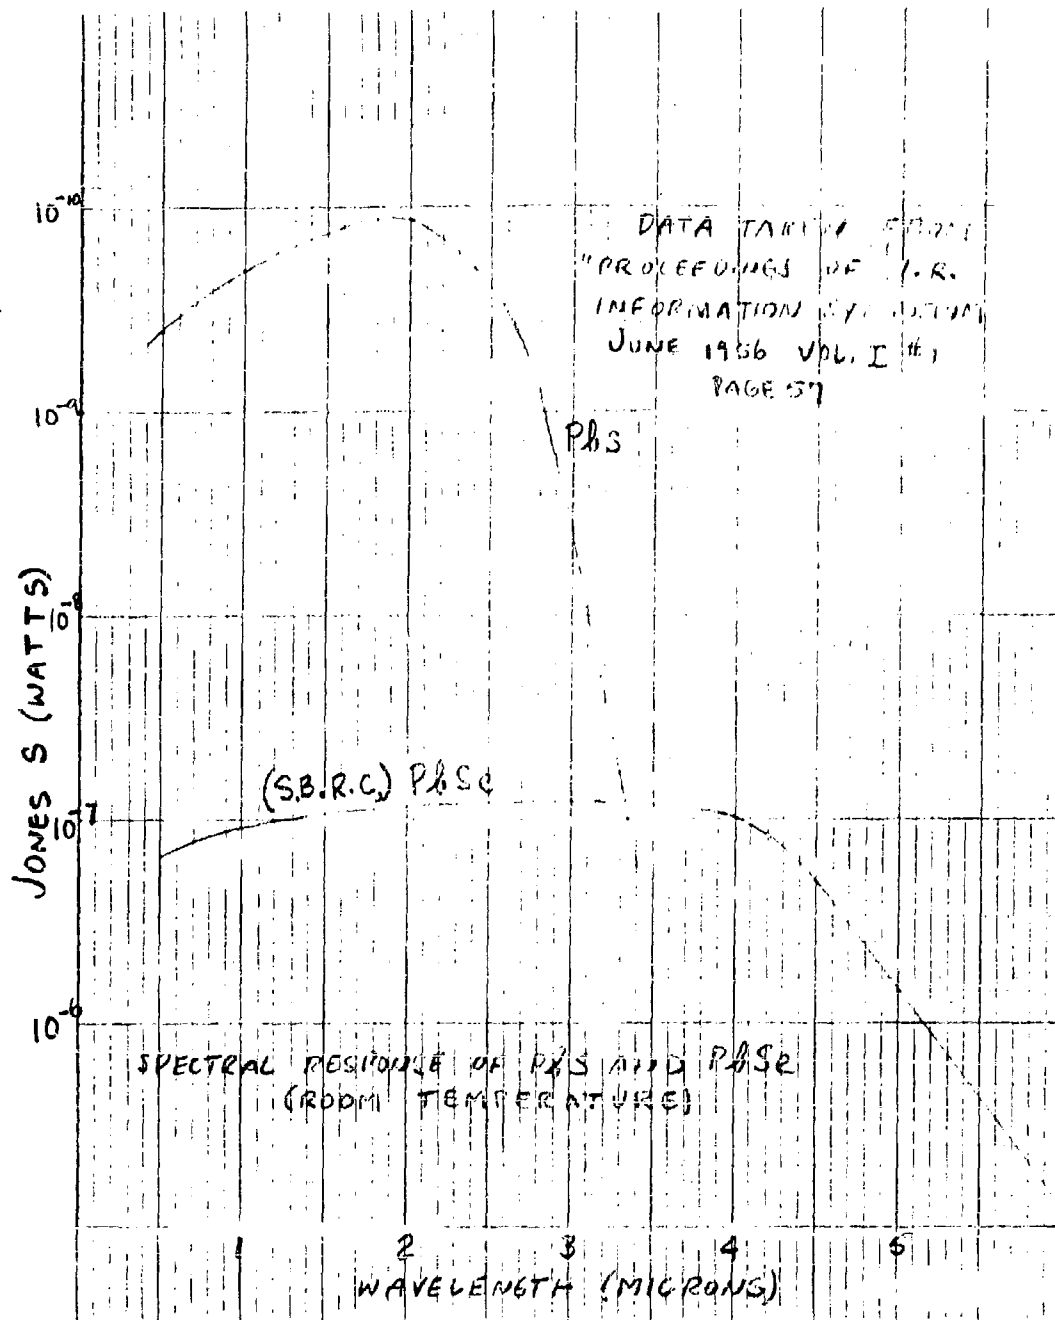 10⁻¹⁰
DATA TAKEN FROM
"PROCEEDINGS OF I.R.
INFORMATION
JUNE 1956 VOL. I #1
PAGE 57
10⁻⁹
PbS
10⁻⁸
JONES S (WATTS)
(S.B.R.C.) PbSe
10⁻⁷
10⁻⁶
SPECTRAL RESPONSE OF PbS AND PbSe
(ROOM TEMPERATURE)
1 2 3 4 5
WAVELENGTH (MICRONS)